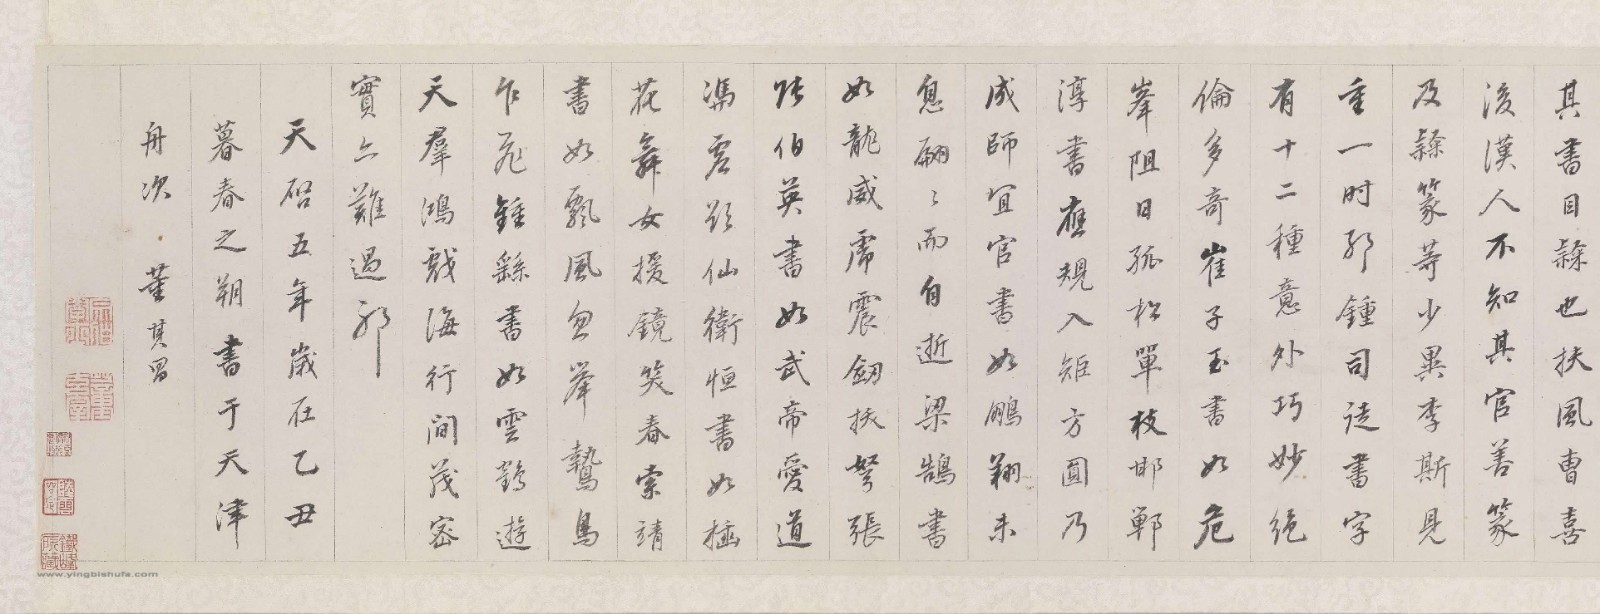 其書目隸也扶風曹喜
後漢人不知其官善篆
及隸篆等少異李斯見
重一时耶鍾司徒書字
有十二種意外巧妙絶
倫多奇崔子玉書如危
峯阻日孤松單枝邯鄲
淳書應規入矩方圓乃
成師宜官書如鵬翔未
息翩〻而自逝梁鵠書
如龍威虎震劔拔弩張
張伯英書如武帝愛道
馮虚欲仙衛恒書如插
花舞女援鏡笑春索靖
書如飄風忽舉鷙鳥
乍飛鍾繇書如雲鶴遊
天羣鴻戲海行間茂密
實亦難過耶
天啓五年歲在乙丑
暮春之朔書于天津
舟次 董其昌
www.yingbishufa.com